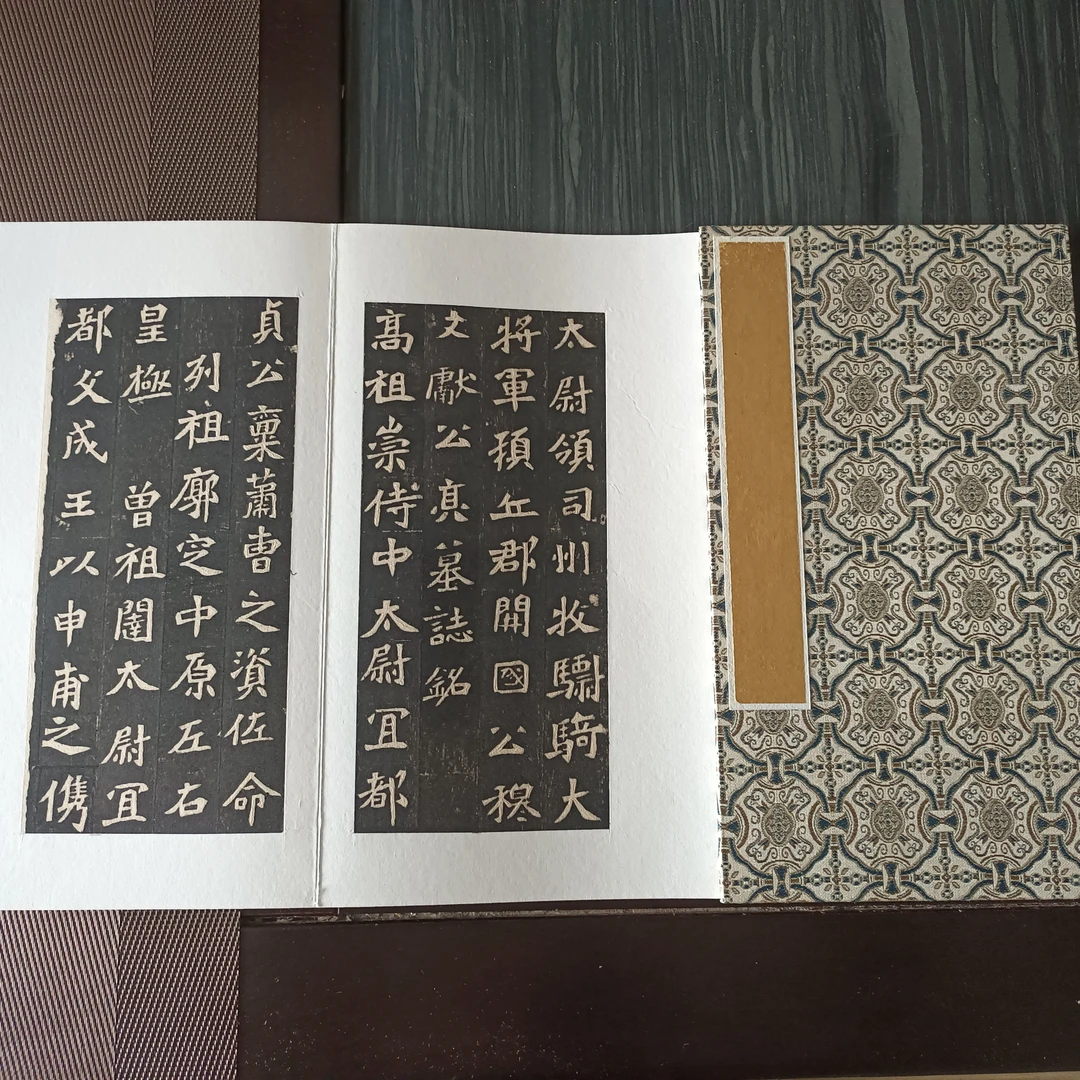 太尉領司州牧驃騎大
将軍頓丘郡開國公穆
文獻公亮墓誌銘
高祖崇侍中太尉宜都
貞公稟蕭曹之資佐命
列祖廓定中原左右
皇極 曾祖闥太尉宜
都文成王以申甫之儁